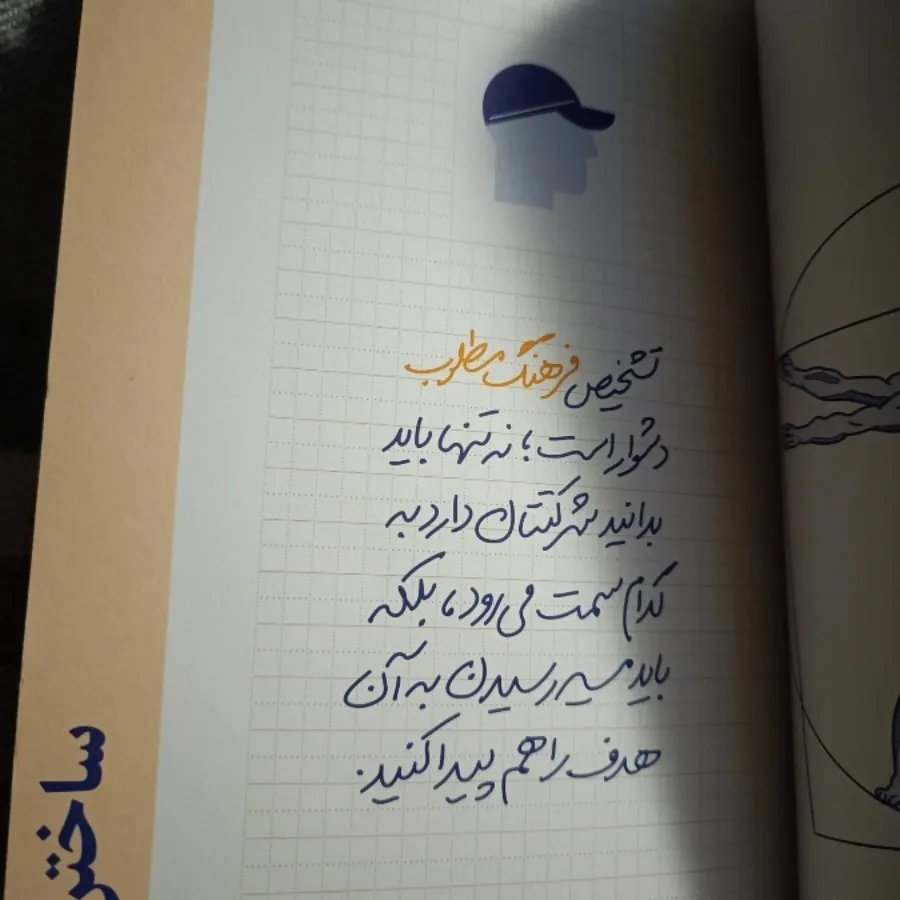 تشخیص فرهنگ مطلوب
دشوار است؛ نه تنها باید
بدانید شرکتتان دارد به
کدام سمت می‌رود، بلکه
باید مسیر رسیدن به آن
هدف را هم پیدا کنید.